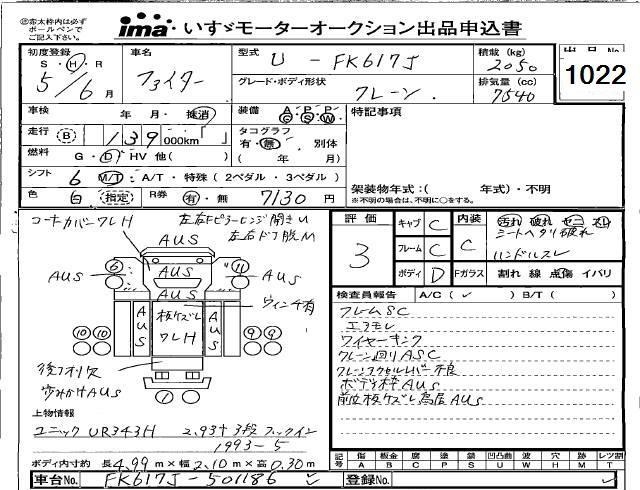 ㊟赤太枠内は必ず
ボールペンで
ご記入下さい。
ima いすゞモーターオークション出品申込書
初度登録 車名 型式 U - FK617J 積載 (kg) 2050
S・H・R
5/6月 ファイター グレード・ボディ形状 クレーン. 排気量 (cc) 7540
出品No.
1022
車検 年 月・検消 装備 A・P・P
G S W
特記事項
走行 B 139 000km「 」 タコグラフ
有・無・別体
( 年 月)
燃料 G・D・HV 他( )
シフト 6 M/T・A/T・特殊(2ペダル・3ペダル) 架装物年式:( 年式)・不明
色 白 指定 R券 有・無 7130円 ※不明の場合は、不明に○をする。
コーナーカバーワレH 左右Fピラーヒンジ開きU
左右ドア脱M
AUS
AUS AUS AUS
6 11
AUS
ウィンチ有
AUS 板ケズレ AUS
ワレH
10 10 9 9
後アオリ欠
歩み板AUS
1
評価 3
キャブ C 内装 C 汚れ 破れ セニ スレ
シートヘタリ破れ
ハンドルスレ
フレーム C
ボディ D Fガラス 割れ 線 点傷 イバリ
検査員報告 A/C( ✓ ) B/T( )
フレームSC
エアモレ
ワイヤーキンク
クレーン廻りASC
クレーンアクセルレバー不良
ボデー枠AUS
前立板ケズレ鳥居AUS
上物情報
ユニック UR343H 2.93t 3段フックイン
1993-5
ボディ内寸約 長4.99m×幅2.10m×高0.30m
記号 傷 板金 腐 塗 錆 凹凸曲 波 穴 外 レツ割
A B C P S U W H M T
車台No. FK617J-501186 ✓ 登録No. ✓